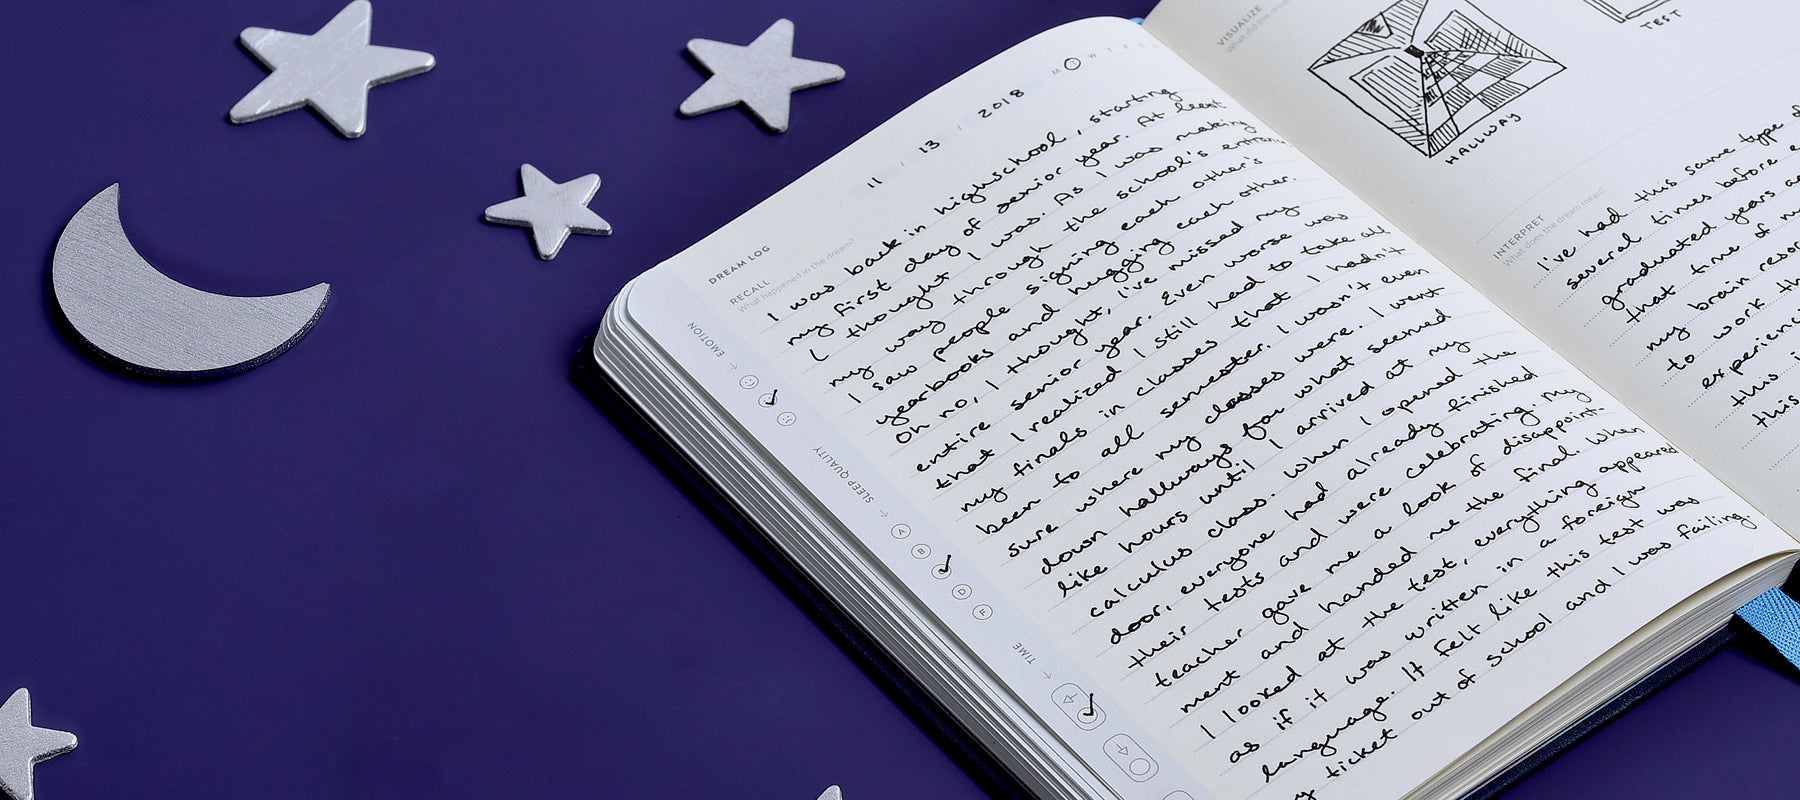 M T W T F S S
11 / 13 / 2018
DREAM LOG
RECALL
What happened in the dream?
I was back in highschool, starting
my first day of senior year. At least
I thought I was. As I was making
my way through the school's entrance
I saw people signing each other's
yearbooks and hugging each other.
Oh no, I thought, I've missed my
entire senior year. Even worse was
that I realized I still had to take all
my finals in classes that I hadn't
been to all semester. I wasn't even
sure where my classes were. I went
down hallways for what seemed
like hours until I arrived at my
calculus class. When I opened the
door, everyone had already finished
their tests and were celebrating. My
teacher gave me a look of disappoint-
ment and handed me the final. When
I looked at the test, everything appeared
as if it was written in a foreign
language. It felt like this test was
my ticket out of school and I was failing.
EMOTION
SLEEP QUALITY
A
B
D
F
TIME
VISUALIZE
What did the dream
HALLWAY
TEST
INTERPRET
What does the dream mean?
I've had this same type of
several times before
graduated years
that time of
my brain
to work
this
this